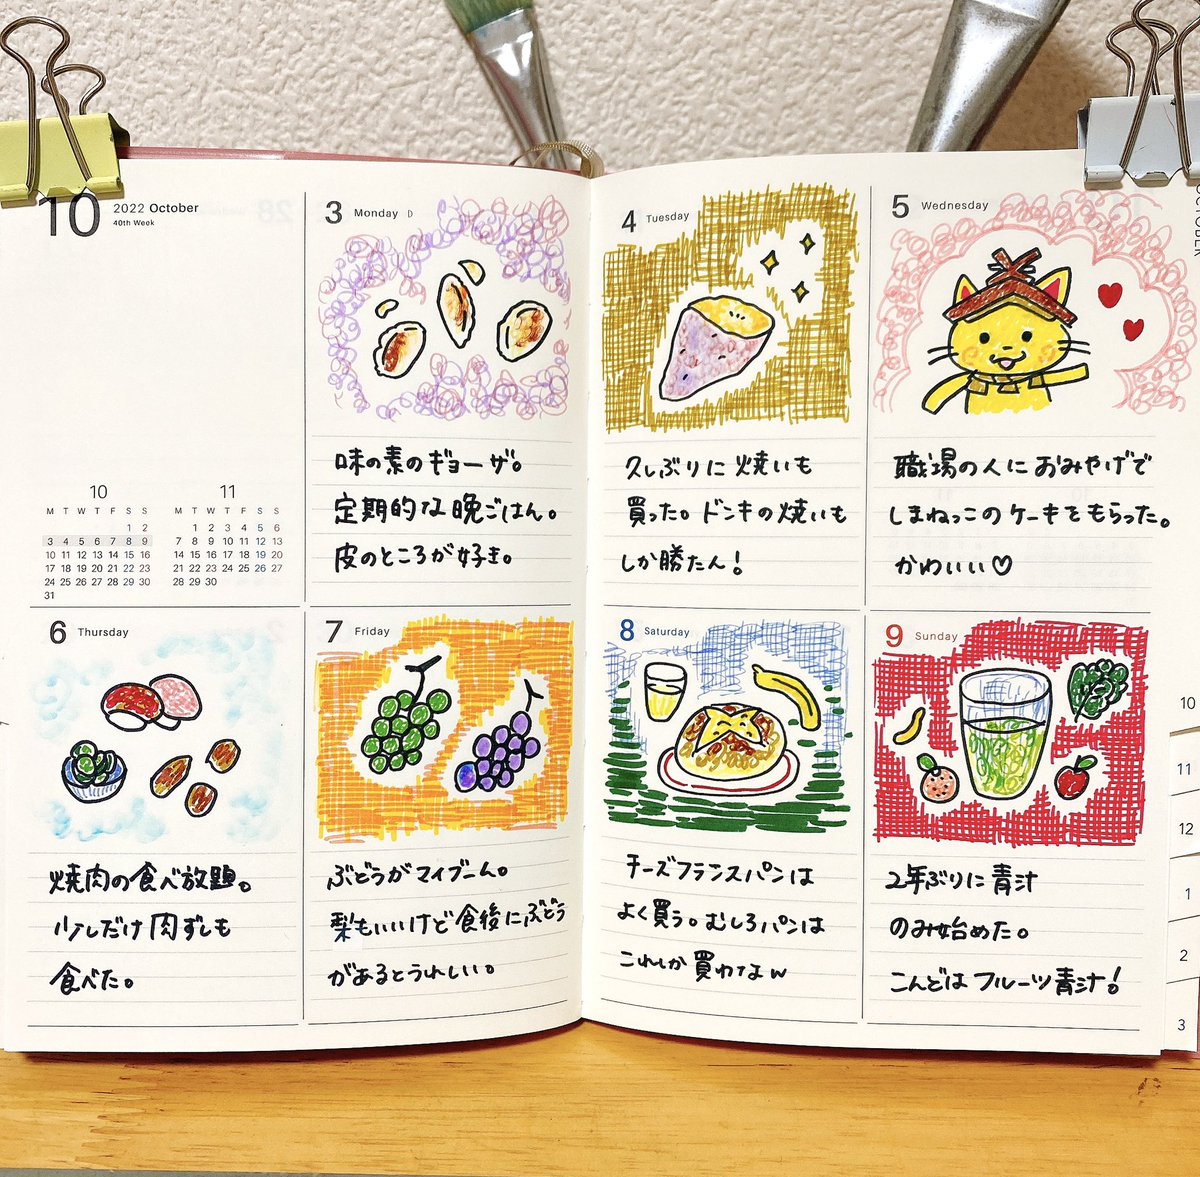 10
2022 October
40th Week
10
M T W T F S S
1 2
3 4 5 6 7 8 9
10 11 12 13 14 15 16
17 18 19 20 21 22 23
24 25 26 27 28 29 30
31
11
M T W T F S S
1 2 3 4 5 6
7 8 9 10 11 12 13
14 15 16 17 18 19 20
21 22 23 24 25 26 27
28 29 30
3 Monday
味の素のギョーザ。
定期的な晩ごはん。
皮のところが好き。
4 Tuesday
久しぶりに焼いも
買った。ドンキの焼いも
しか勝たん!
5 Wednesday
職場の人におみやげで
しまねっこのケーキをもらった。
かわいい♡
6 Thursday
焼肉の食べ放題。
少しだけ肉ずしも
食べた。
7 Friday
ぶどうがマイブーム。
梨もいいけど食後にぶどう
があるとうれしい。
8 Saturday
チーズフランスパンは
よく買う。むしろパンは
これしか買わなw
9 Sunday
2年ぶりに青汁
のみ始めた。
こんどはフルーツ青汁!
OCTOBER
10
11
12
1
2
3